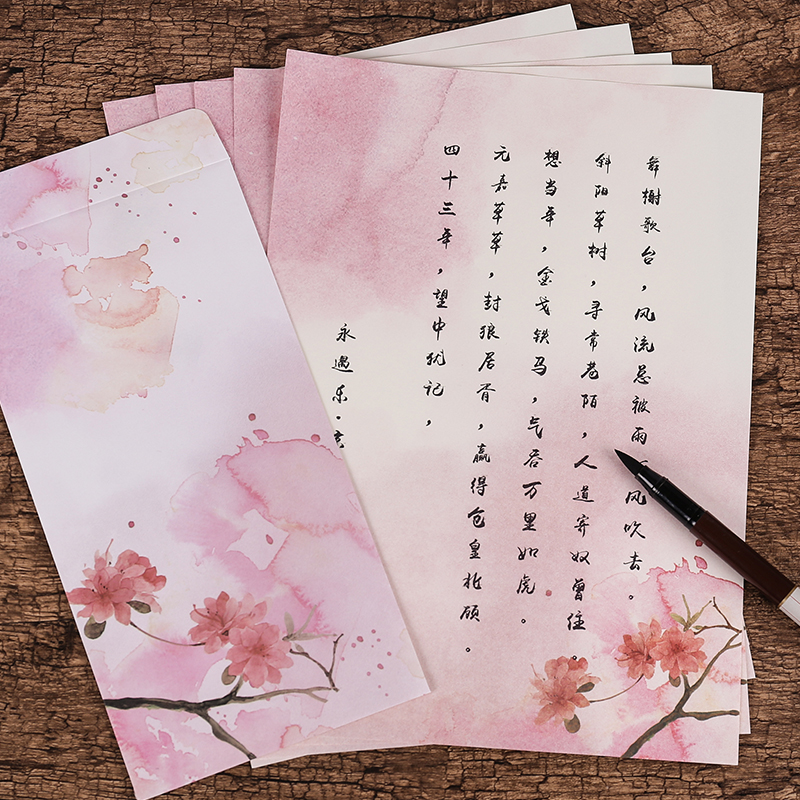 舞榭歌台，风流总被雨风吹去。
斜阳草树，寻常巷陌，人道寄奴曾住。
想当年，金戈铁马，气吞万里如虎。
元嘉草草，封狼居胥，赢得仓皇北顾。
四十三年，望中犹记，
永遇乐·京